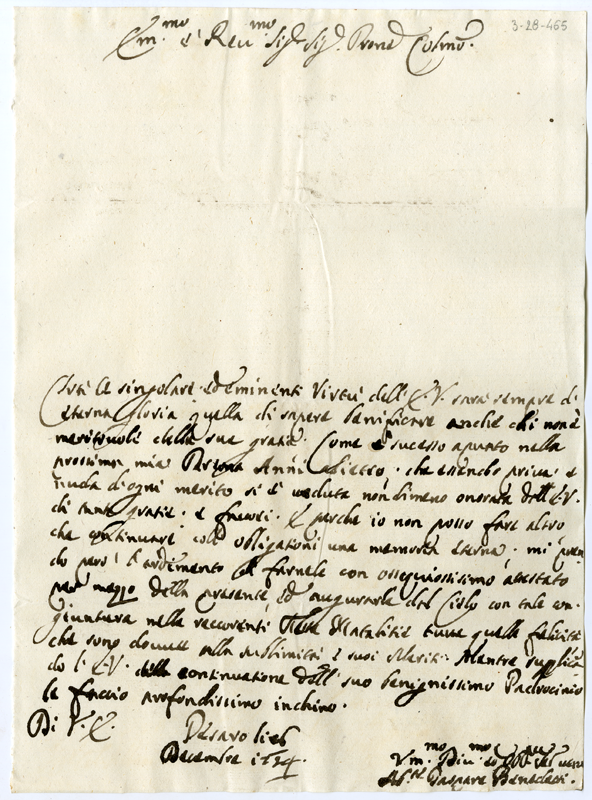 3-28-465
Em.mo e Reu.mo Sig.r Sig.r Prone Colmo.
Trà le singolari ed eminenti Virtù dell'E.V. sarà sempre di
eterna gloria quella di sapere benificare anche chi non è
meritevole della sua gratia. Come è sucesso apunto nella
prossima mia Persona Anni adietro. che essendo priva e
nuda d'ogni merito si è veduta nondimeno onorata dell'E.V.
di tante gratie. e favori. E perche io non posso fare altro
che continuare coll' obligationi una memoria eterna. mi pren
do però l'ardimento di farnele con ossequiosissimo attestato
per mezzo della presente, ed augurarle dal Cielo con tale con
giuntura nelle raccorenti Feste Natalitie tutte quelle felicità
che sono dovute alla sublimità de suoi Meriti. Mentre suplican
do l'E.V. della continuatione dell' suo benignissimo Padrocinio
le faccio profondissimo inchino.
Di V.E.
Pesaro li 16
Decembre 1714.
V.mo Diu.mo ed Obb. Ser.
Gaspare Benedetti.